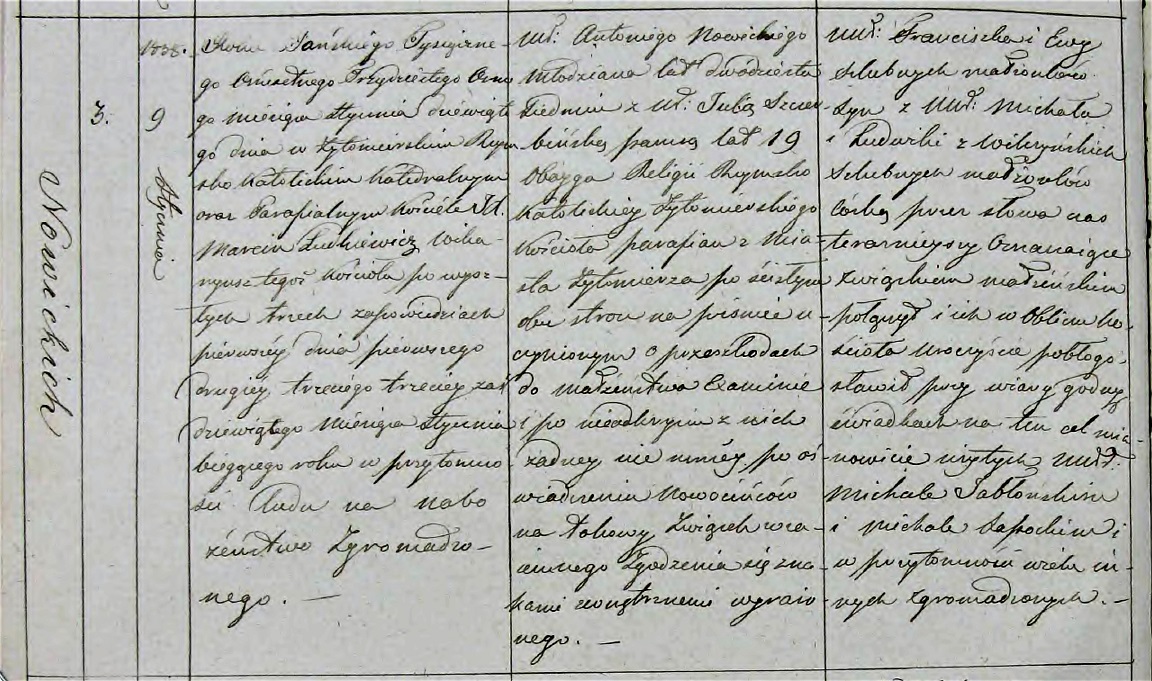 3.
Nowickich
1838.
9
Stycznia
Roku Pańskiego Tysiączne-
go Ośmsetnego Trzydziestego Osmo
go miesiąca Stycznia dziewiąte
go dnia w Żytomierskim Rzym
sko Katolickim Katedralnym
oraz Parafialnym Kościele JX.
Marcin Lutkiewicz Wika-
ryusz tegoż Kościoła po wysz-
łych trzech zapowiedziach
pierwszéy dnia pierwszego
drugiéy trzeciego trzeciéy zaś
dziewiątego miésiąca Stycznia
bieżącego roku w przytomno-
ści Ludu na nabo
żeństwo Zgromadzo-
nego. —
Uł: Antoniego Nowickiego
Młodziana lat dwódziestu
Siedmiu z Uł: Julią Szczer
bińską panną lat 19
Obóyga Religii Rzymsko
Katolickiéy Żytomierskiego
Kościoła parafian z Mia-
sta Żytomierza po ścisłym
obu stron na piśmie u-
czynionym o przeszkodach
do małżeństwa Examinie
i po nieodkryciu z nich
żadney nie mniéy po oś-
wiadczeniu Nowożeńców
na takowy Związek wza-
iemnego Zgodzenia się zna-
kami zewnętrznemi wyrażo-
nego. —
Uuł: Franciszka i Ewy
Szlubnych małżonków
Syn z Uuł: Michała
i Ludwiki z Wilczyńskich
Szlubnych małżonków
Córką przez słowa nas
teraznieyszy Oznaczaiące
związkiem małżeńskim
połączył i ich w Obliczu Ko-
ścioła uroczyście pobłogo-
sławił przy wiary godnych
świadkach na ten cel mia-
nowicie użytych Uuł:
Michale Jabłońskim
i Michale i
w przytomności wielu in-
nych zgromadzonych. —